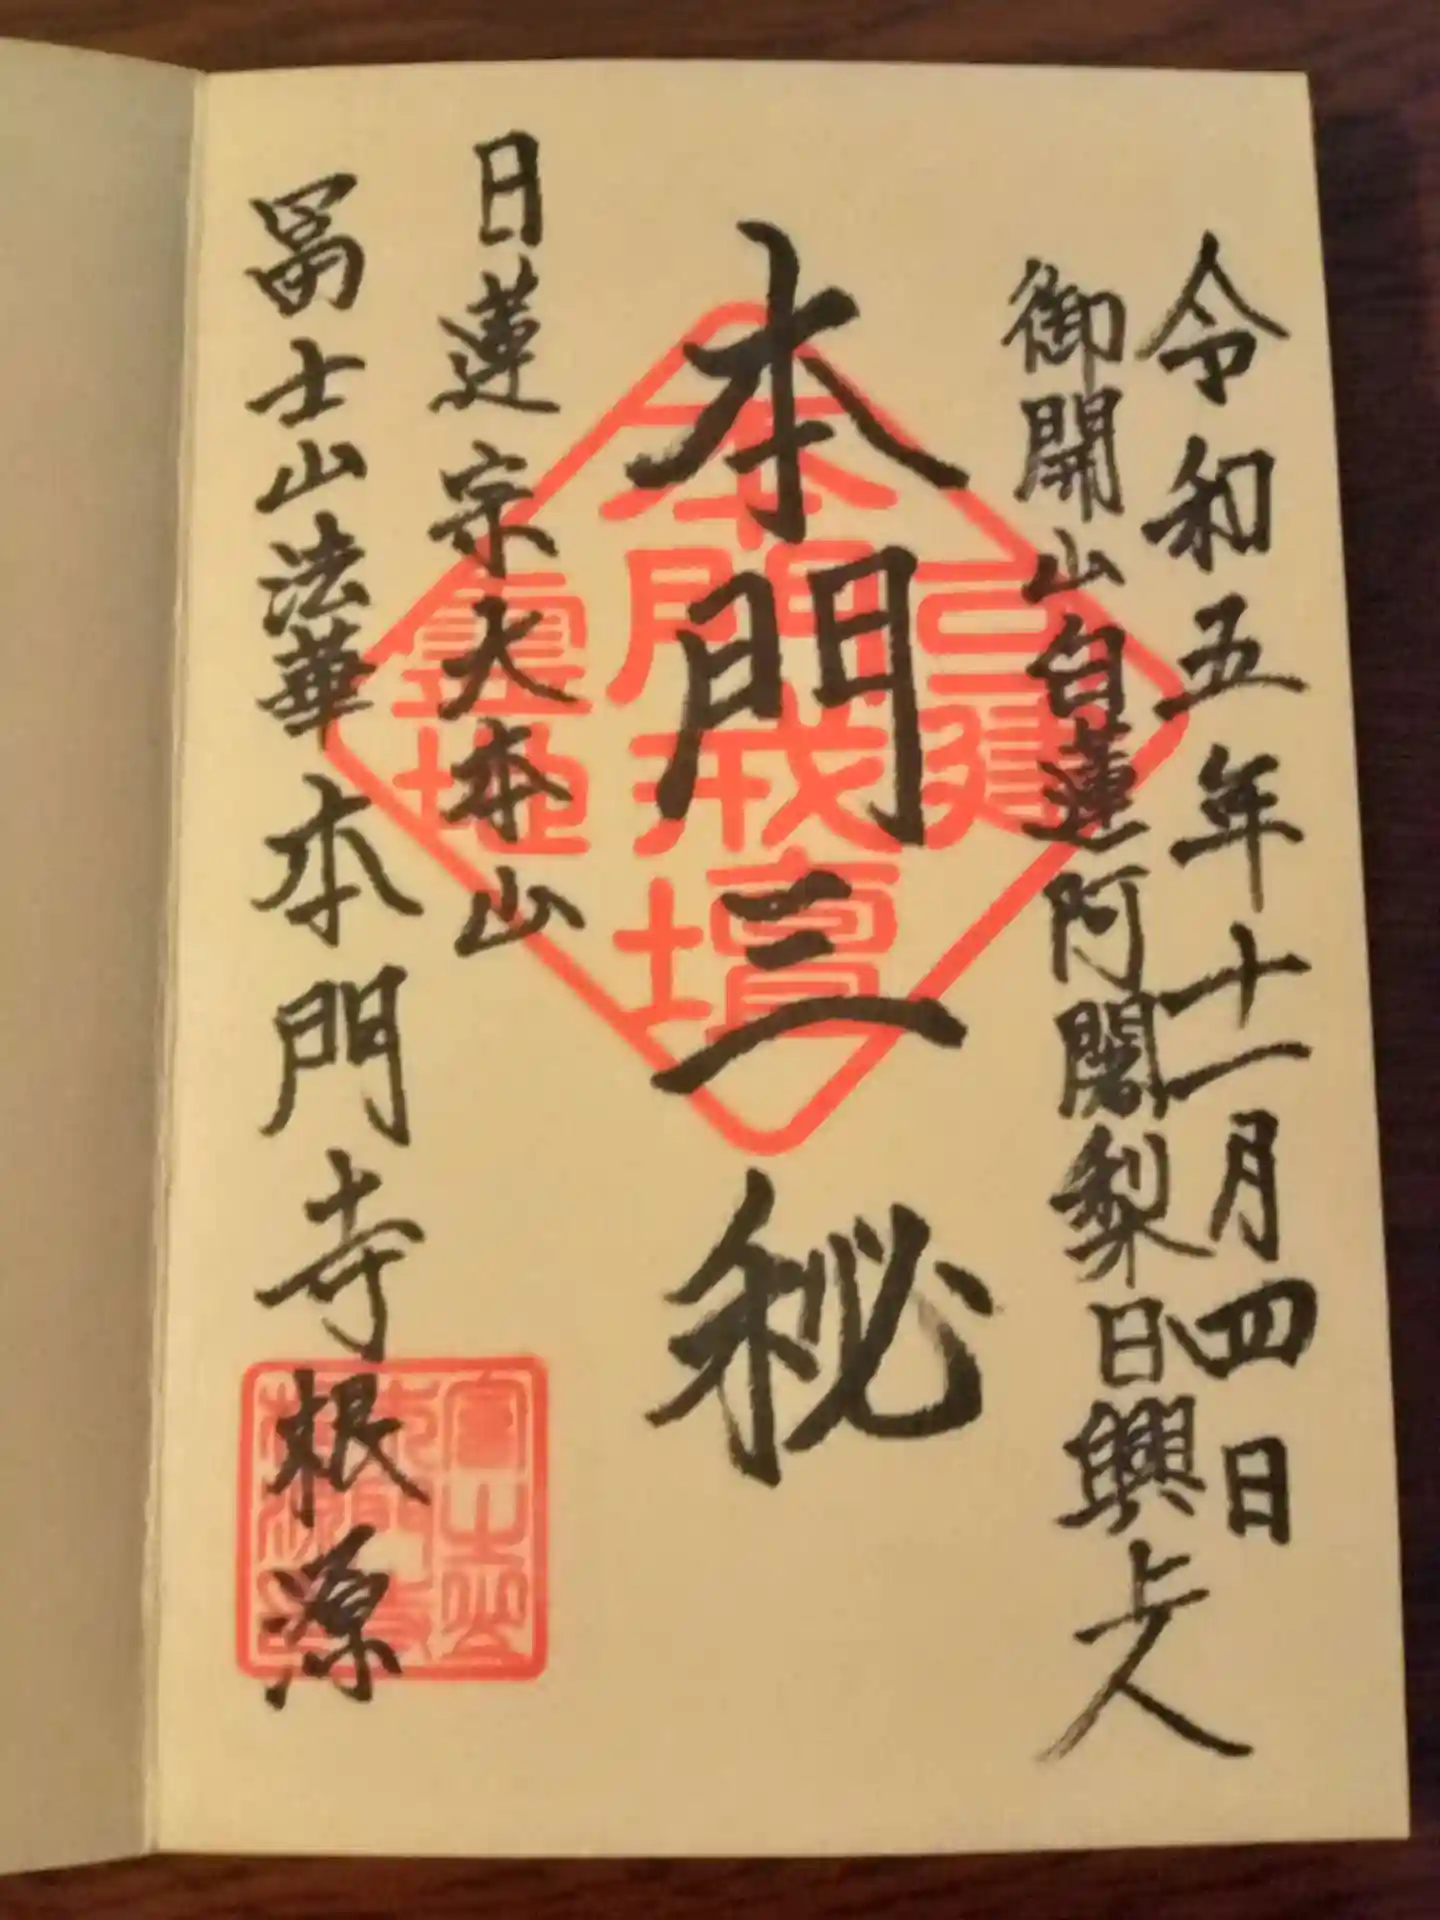 令和五年十一月四日
御開山白蓮阿闍梨日興上人
本門三秘
日蓮宗大本山
冨士山法華本門寺根源
本門戒壇
霊地